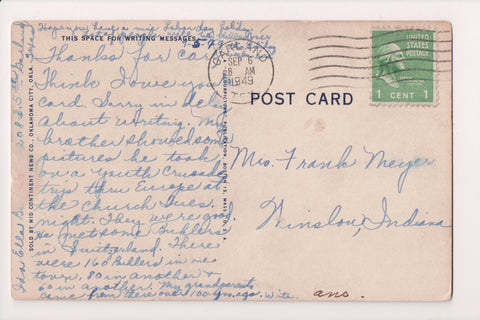 Hope you have a nice Labor day holiday
THIS SPACE FOR WRITING MESSAGES
9-5-49
Thanks for card.
Think I owe you
card. Sorry in delay
about writing. My
brother showed some
pictures he took
on a Youth Crusade
trip thru Europe at
the Church Tues.
night. They were good
He met some Buhlers
in Switzerland. There
were 160 Buhlers in one
town, 80 in another &
60 in another. My grandparents
came from there over 100 yrs. ago. Write.
Ida Ella B.
Garland
Texas
SOLD BY MID CONTINENT NEWS CO., OKLAHOMA CITY, OKLA.
GARLAND
SEP 6
8 AM
1949
UNITED STATES
POSTAGE
1 CENT 1
POST CARD
Mrs. Frank Meyer
Winslow, Indiana
ans.